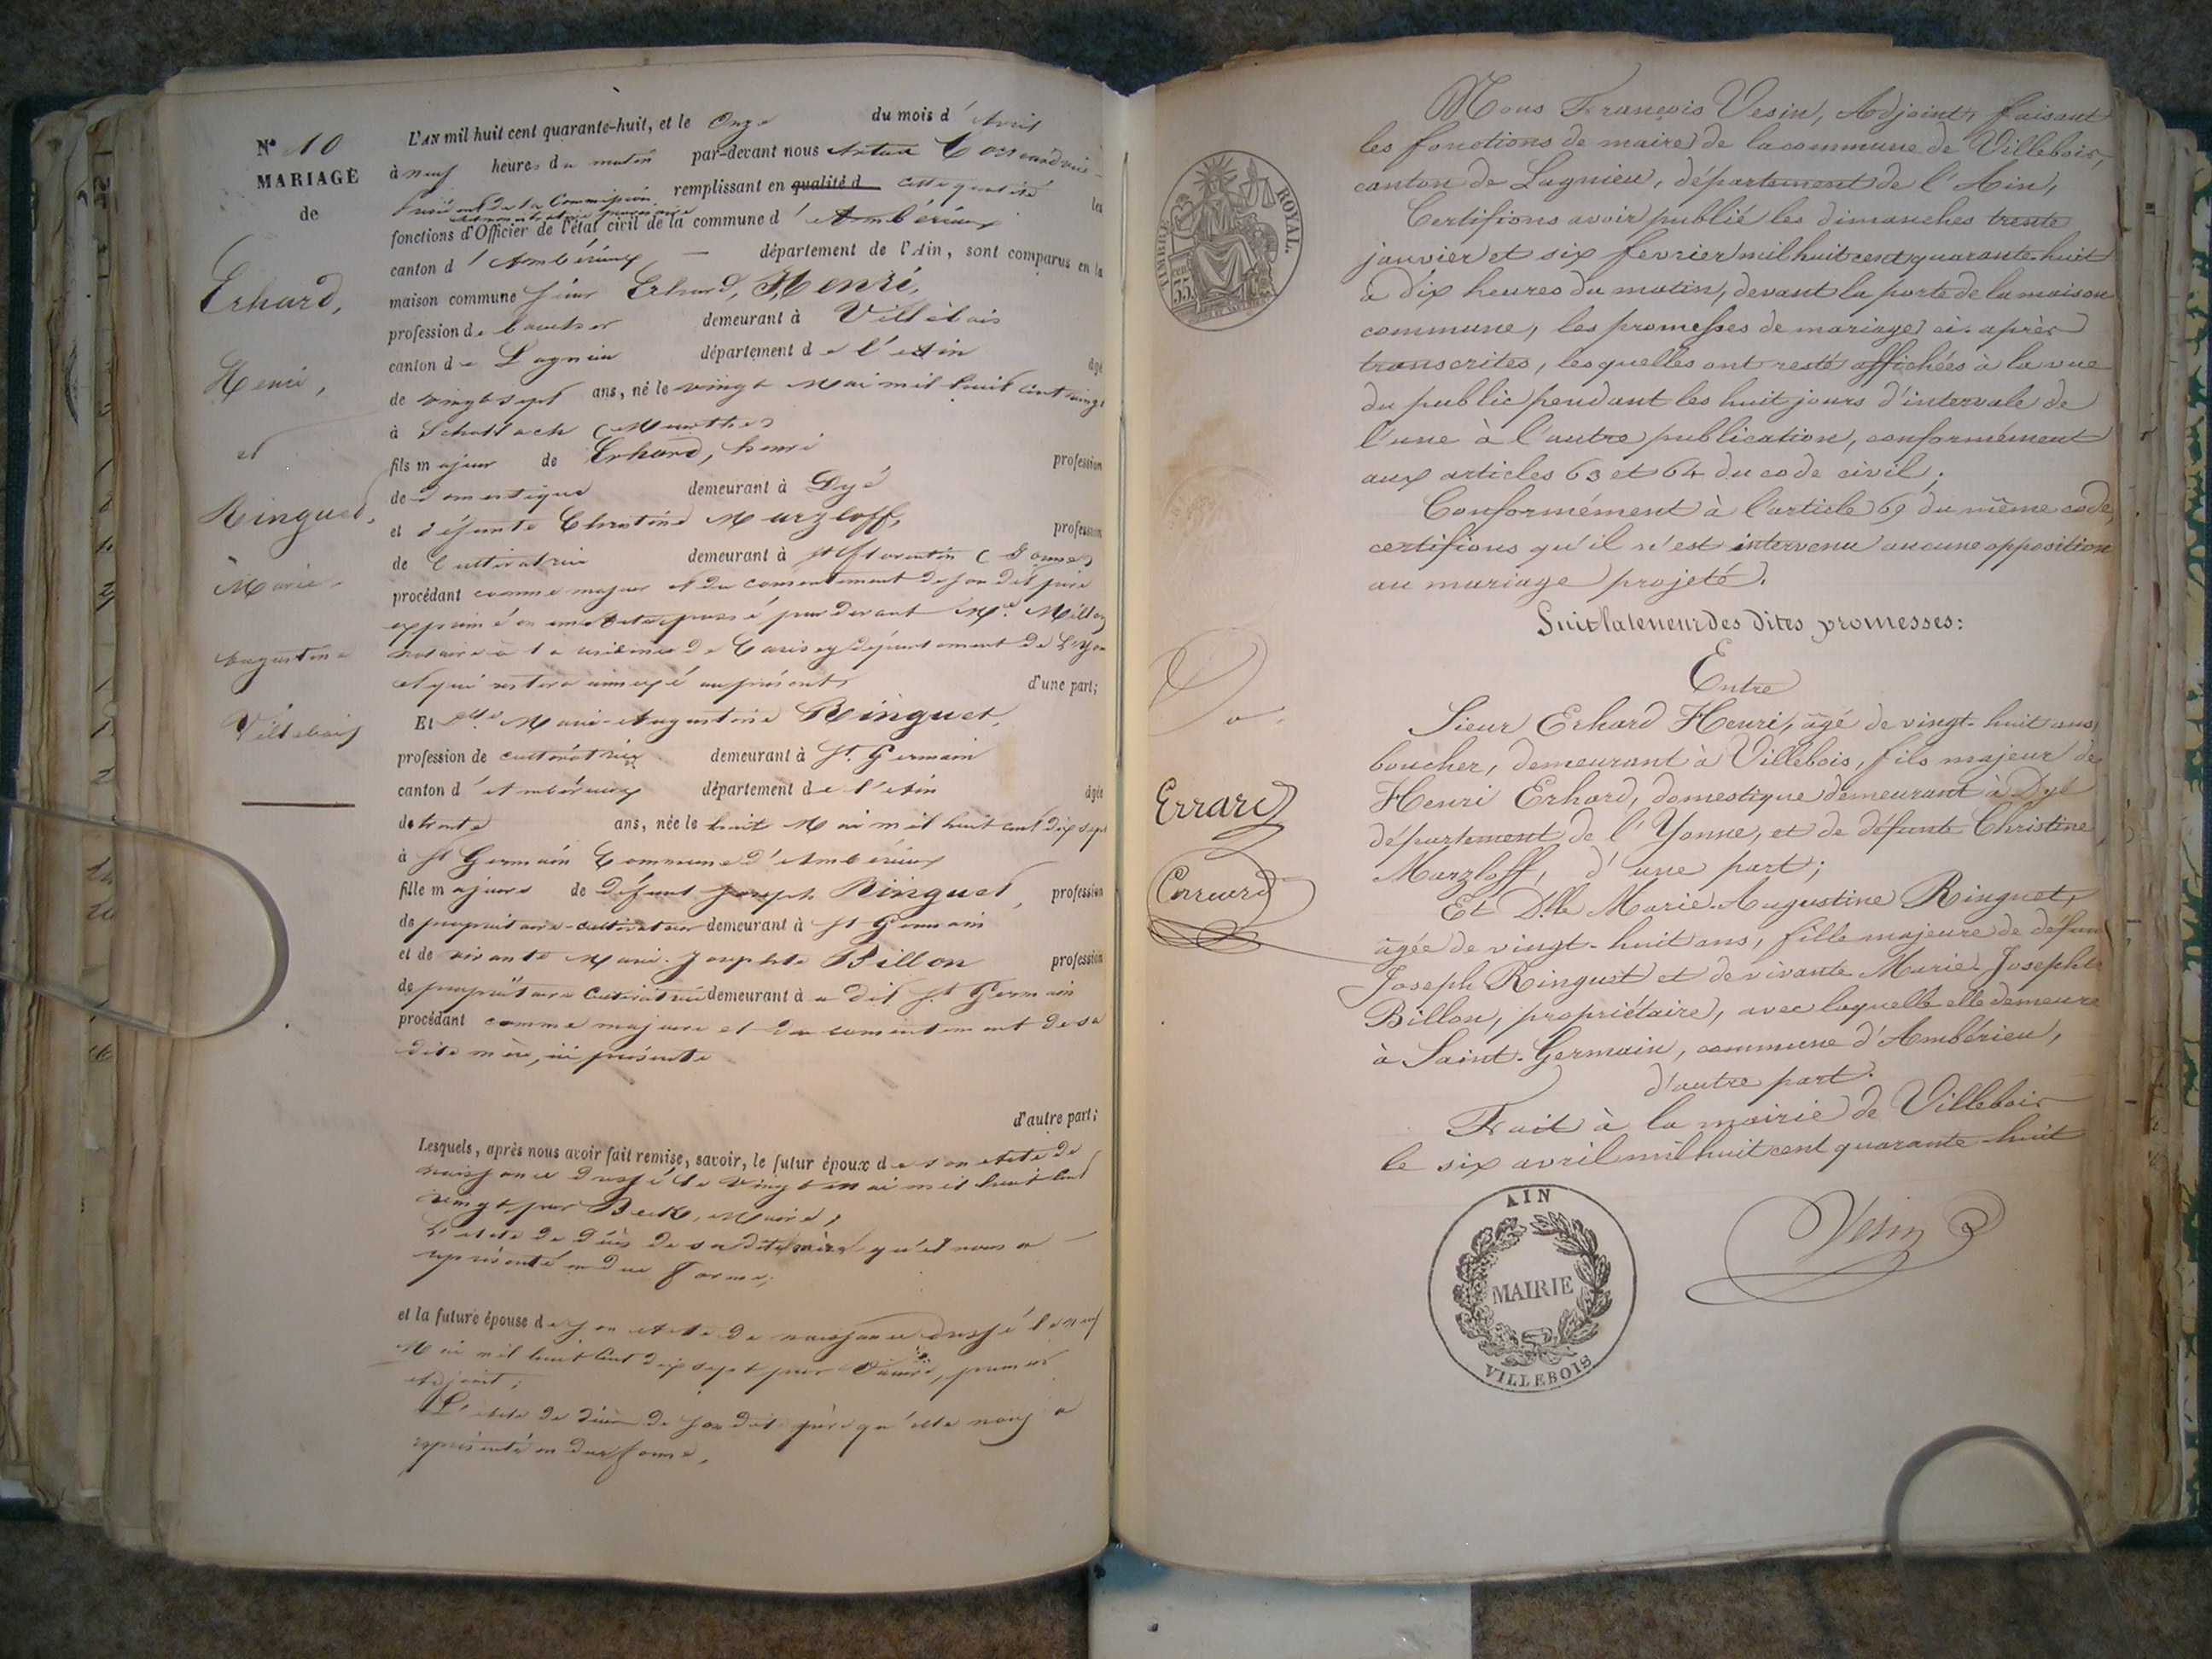 N° 10
MARIAGE
de
Erhard,
Henri,
et
Ringuet,
Marie-
Augustine
Villebois
L'AN mil huit cent quarante-huit, et le Onze du mois d'Avril
à neuf heures du matin par-devant nous
de la Commission remplissant en qualité d cette qualité les
fonctions d'Officier de l'état civil de la commune d'Ambérieux
canton d'Ambérieux — département de l'Ain, sont comparus en la
maison commune sieur Erhard, Henri,
profession de boucher demeurant à Villebois
canton de Lagnieu département de l'Ain âgé
de vingt sept ans, né le vingt Mai mil huit cent vingt
à Schallbach (Meurthe)
fils majeur de Erhard, henri profession
de domestique demeurant à Dyé
et défunte Christine Murzloff, profession
de Cultivatrice demeurant à St Florentin (Yonne)
procédant comme majeur et du consentement de son dit père
exprimé en un acte passé pardevant Me. Millon
notaire à la résidence de Carisey département de l'Yonne
et qui restera annexé au présent, d'une part;
Et Dlle Marie-Augustine Ringuet,
profession de cultivatrice demeurant à St. Germain
canton d'Ambérieux département de l'Ain âgée
de trente ans, née le huit Mai mil huit cent dix sept
à St Germain Commune d'Ambérieux
fille majeure de défunt Joseph Ringuet, profession
de propriétaire-cultivateur demeurant à St Germain
et de vivante Marie-Josephte Billon profession
de propriétaire cultivatrice demeurant à dit St Germain
procédant comme majeure et du consentement de sa
dite mère, ici présente
d'autre part;
Lesquels, après nous avoir fait remise, savoir, le futur époux de son acte de
naissance dressé le vingt mai mil huit cent
vingt, par Beck, Maire;
L'acte de décès de sa dite mère qu'il nous a
représenté en due forme;
et la future épouse de son acte de naissance dressé le neuf
Mai mil huit cent dix sept par premier
adjoint;
L'acte de décès de son dit père qu'elle nous a
représenté en due forme,
TIMBRE ROYAL.
35
Errard
Nous François Vesin, Adjoint, faisant
les fonctions de maire de la commune de Villebois,
canton de Lagnieu, département de l'Ain,
Certifions avoir publié les dimanches trente
janvier et six fevrier mil huit cent quarante-huit
à dix heures du matin, devant la porte de la maison
commune, les promesses de mariage ci-après
transcrites, lesquelles ont resté affichées à la vue
du public pendant les huit jours d'intervale de
l'une à l'autre publication, conformément
aux articles 63 et 64 du code civil;
Conformément à l'article 69 du même code,
certifions qu'il n'est intervenu aucune opposition
au mariage projeté.
Suit la teneur des dites promesses:
Entre
Sieur Erhard Henri, âgé de vingt-huit ans,
boucher, demeurant à Villebois, fils majeur de
Henri Erhard, domestique demeurant à Dyé
département de l'Yonne, et de défunte Christine
Murzloff, d'une part;
Et Dlle Marie-Augustine Ringuet,
âgée de vingt-huit ans, fille majeure de défunt
Joseph Ringuet et de vivante Marie-Josephte
Billon, propriétaire, avec laquelle elle demeure
à Saint-Germain, commune d'Ambérieu,
d'autre part.
Fait à la mairie de Villebois
le six avril mil huit cent quarante-huit
Vesin
AIN
MAIRIE
VILLEBOIS